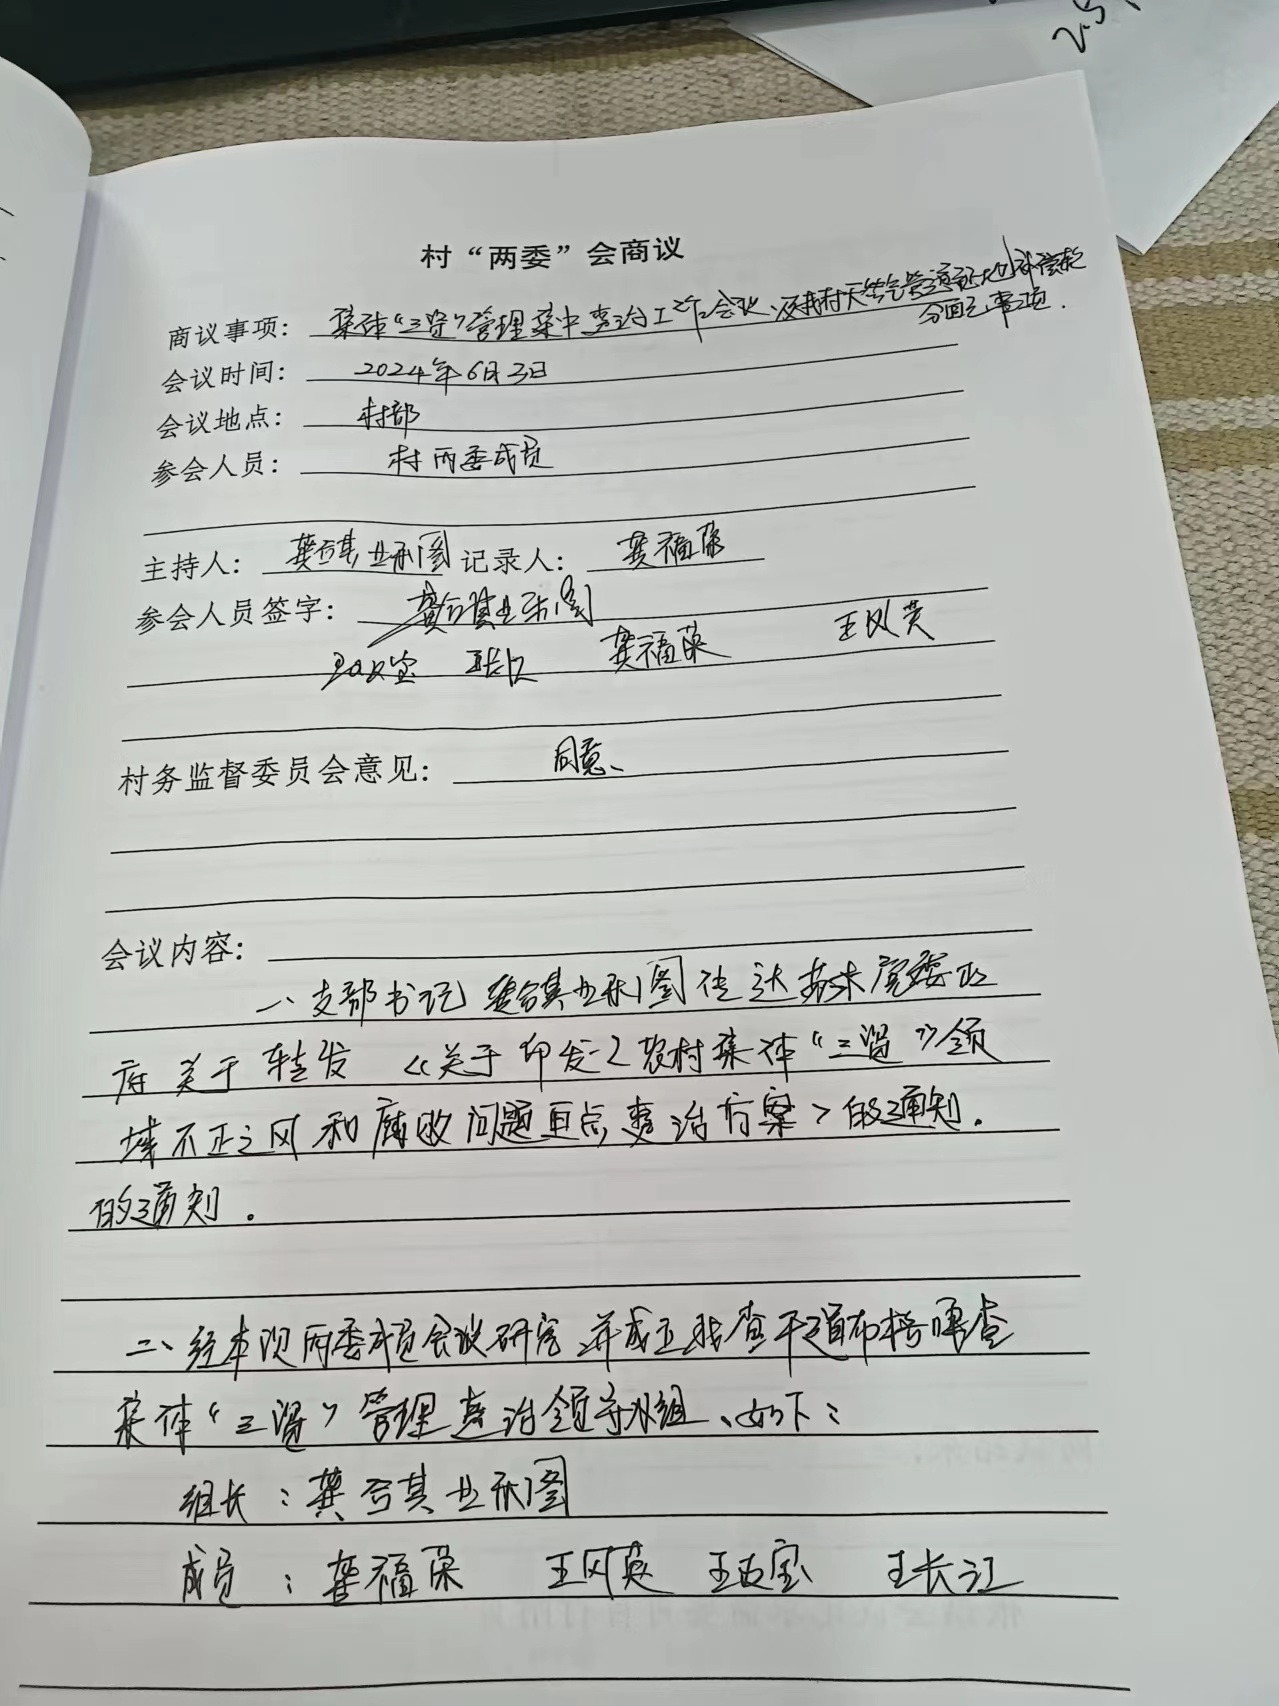 2.5
村“两委”会商议
商议事项：集体“三资”管理集中整治工作会议及我村天然气管道占地补偿款
分配事项.
会议时间：2024年6月3日
会议地点：村部
参会人员：村两委成员
主持人：龚 其 图 记录人：龚福荣
参会人员签字：龚 其 图
王 宝 王长江 龚福荣 王风英
村务监督委员会意见：同意、
会议内容：
一、支部书记 其 图传达苏木党委政
府关于转发《关于印发<农村集体“三资”领
域不正之风和腐败问题重点整治方案>的通知.
的通知.
二、经本次两委成员会议研究,并成立
集体“三资”管理整治领导小组、如下：
组长：龚 其 图
成员：龚福荣 王风英 王 宝 王长江